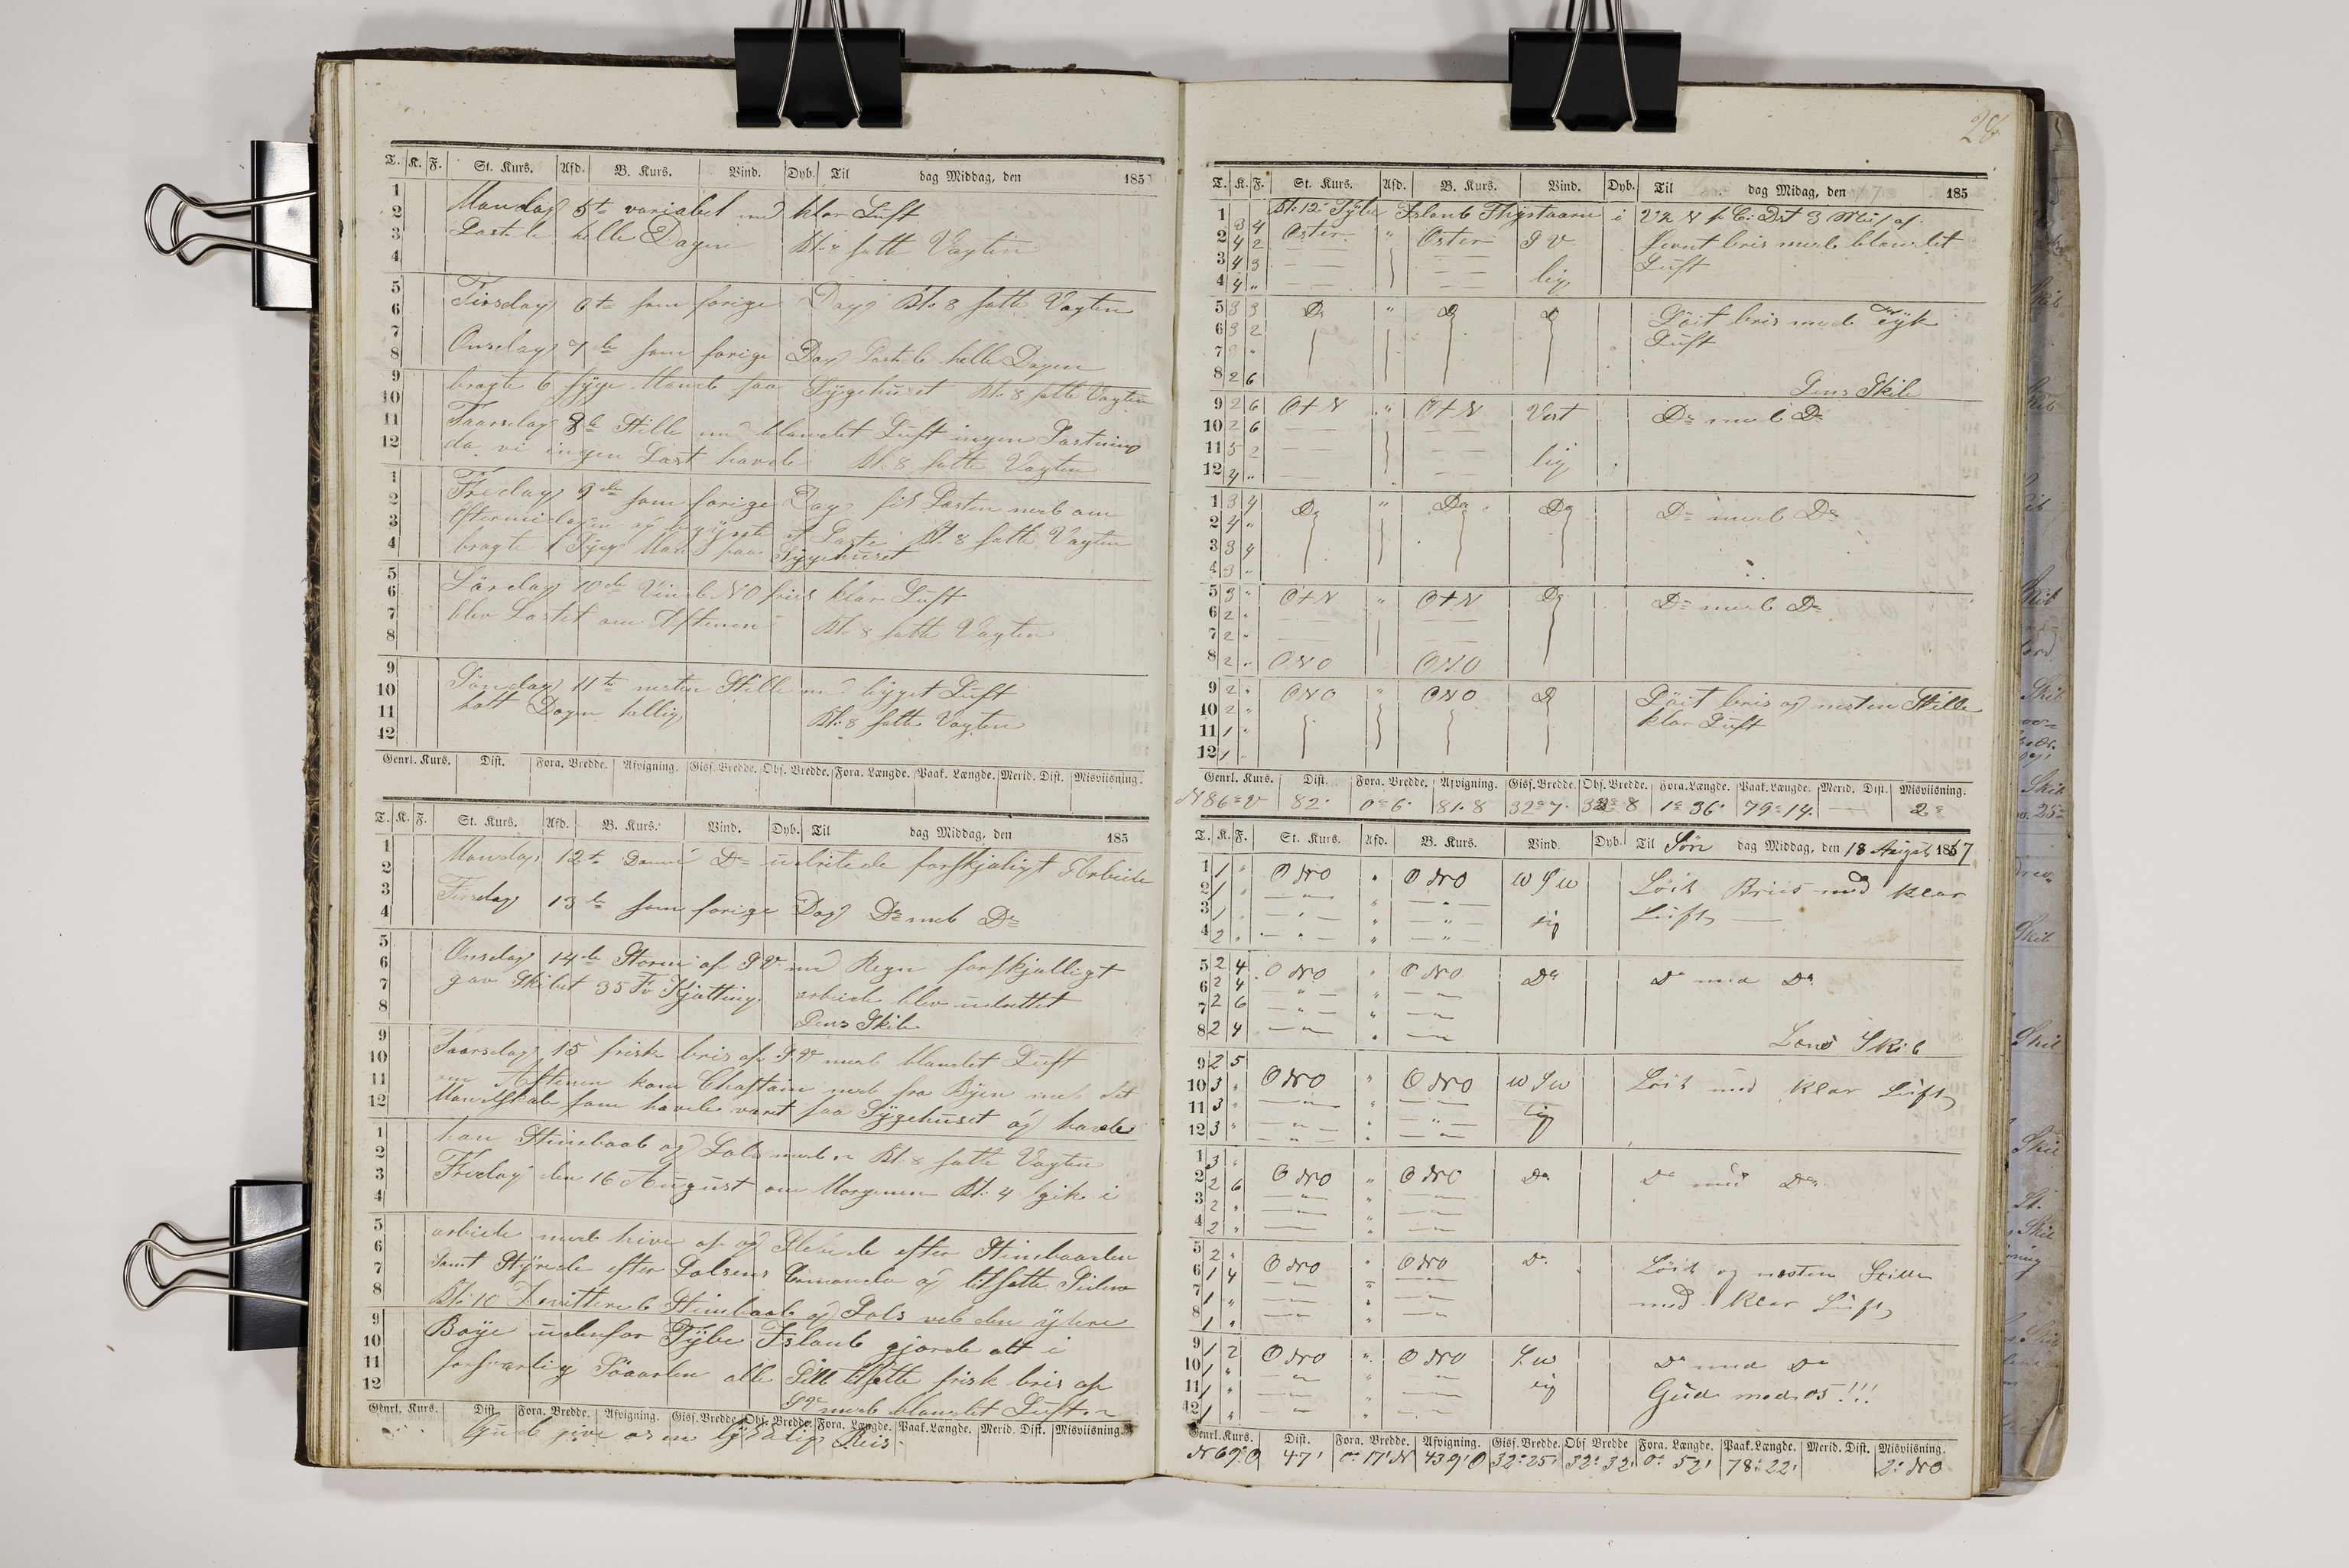 T. K. F. St. Kurs. Afd. B. Kurs. Vind. Dyb. Til dag Middag, den 185
Mandag 5te variabel med klar Luft
Last de hele Dagen Kl. 8 satte Vagten
Tirsdag 6te som forige Dag Kl. 8 satte Vagten
Onsdag 7de som forige Dag Last de hele Dagen
bragte 6 syge Mand paa Sygehuset Kl. 8 satte Vagten
Taarsdag 8de Stille med blandet Luft ingen Lastning
da vi ingen Last havde Kl. 8 satte Vagten
Fredag 9de som forige Dag fik Lasten ned om
Eftermidagen og begynte at Laste Kl. 8 satte Vagten
bragte 1 Syg Mand paa Sygehuset
Lördag 10de Vind NO frisk klar Luft
blev Lastet om Aftenen Kl. 8 satte Vagten
Söndag 11te nesten Stille med bÿget Luft
holt Dagen hellig Kl. 8 satte Vagten
Genrl. Kurs. Dist. Fora. Bredde. Afvigning. Giss. Bredde. Obs. Bredde. Fora. Længde. Paak. Længde. Merid. Dist. Misviisning.
T. K. F. St. Kurs. Afd. B. Kurs. Vind. Dyb. Til dag Middag, den 185
Mandag 12te Do udritede forskjäligt Arbeide
Tirsdag 13de som forige Dag Do med Do
Onsdag 14de Storm af SV med Regn forskjälligt
gav Skibet 35 Fv Kjætting arbeide blev udrettet
Lens Skib
Taarsdag 15 frisk bris af SV med blandet Luft
om Aftenen kom Chaptain ned fra Byen med det
Mandskab som havde veret paa Sygehuset og havde
han Stimbaad og Lods med Kl. 8 satte Vagten
Fredag den 16 August om Morgenen Kl. 4 gik i
arbeide med hive op og Slebede efter Stimbaaden
samt Styrede efter Lodsens Comando og tilsatte Seilene
Kl. 10 Qvitterede Stimbaad og Lods ved den ÿtere
Boÿe udenfor Tÿbe Island gjorde alt i
forsvarlig Söaarden alle Seil tilsatte frisk bris af
SV med blandet Luft
Genrl. Kurs. Dist. Fora. Bredde. Afvigning. Giss. Bredde. Obs. Bredde. Fora. Længde. Paak. Længde. Merid. Dist. Misviisning.
Gud give os en lÿkelig Reis
T. K. F. St. Kurs. Afd. B. Kurs. Vind. Dyb. Til dag Midag, den 17 185
Kl. 12 Island i
1 3 4 Oster " Oster SV Jevnt bris med blandet
2 4 2 Luft
3 4 3
4 4 " lig
5 3 3 Do " Do Do Löit bris med Tÿk
6 3 2 Luft
7
8 2 6 Lens Skib
9 2 6 OtN " OtN Vest Do med Do
10 2 6
11 5 2 lig
12 4 "
1 3 4 Do " Do Do Do med Do
2 4 "
3 3 4
4 3 "
5 3 " OtN " OtN Do Do med Do
6 2 "
7 2 "
8 2 " ONO ONO
9 2 " ONO " ONO Do Löit bris og nesten Stille
10 2 " klar Luft
11 1 "
12 1 "
Genrl. Kurs. Dist. Fora. Bredde. Afvigning. Giss. Bredde. Obs. Bredde. Fora. Længde. Paak. Længde. Merid. Dist. Misviisning.
N 86° 82' 0° 6' 81.8 32° 7' 32° 8 1° 36' 79° 14' 2°
T. K. F. St. Kurs. Afd. B. Kurs. Vind. Dyb. Til Sön dag Middag, den 18 August 1867
1 1 " ONO " ONO WSW Löit Briis med klar
2 1 " Luft
3 1 "
4 2 " lig
5 2 4 ONO " ONO Do Do med Do
6 2 4
7 2 6
8 2 4 Lens Skib
9 2 5 ONO " ONO WSW Löit med klar Luft
10 3 "
11 3 " lig
12 3 "
1 3 "
2 2 6 ONO " ONO Do Do med Do
3 2 "
4 2 "
5 2 " ONO " ONO Do Löit og nesten Stille
6 1 4 med klar Luft
7 1 "
8 1 "
9 1 2 ONO " ONO S.W Do med Do
10 1 " lig
11 1 " Gud med os !!!
12 1 "
Genrl. Kurs. Dist. Fora. Bredde. Afvigning. Giss. Bredde. Obs Bredde Fora. Længde. Paak. Længde. Merid. Dist. Misviisning.
N 69° O 47' 0° 17' N 43 9' O 32° 25' 32° 32' 0° 52' 78° 22' 2° NO